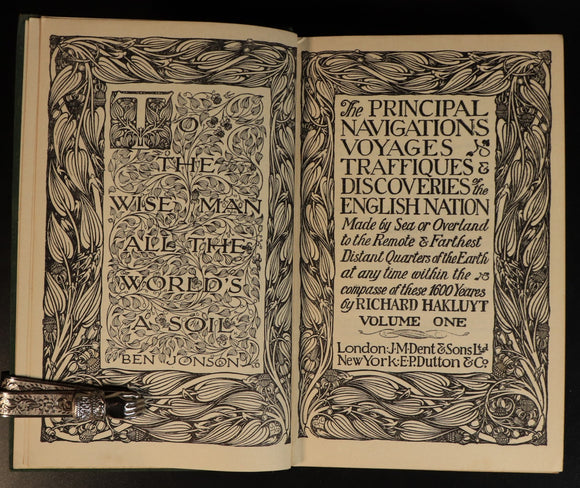 TO
THE
WISE MAN
ALL THE
WORLD'S
A SOIL
BEN JONSON
The PRINCIPAL
NAVIGATIONS
VOYAGES
TRAFFIQUES &
DISCOVERIES of the
ENGLISH NATION
Made by Sea or Overland
to the Remote & Farthest
Distant Quarters of the Earth
at any time within the
compasse of these 1600 Yeares
by RICHARD HAKLUYT
VOLUME ONE
London: J.M.Dent & Sons Ltd
New York: E.P.Dutton & Co